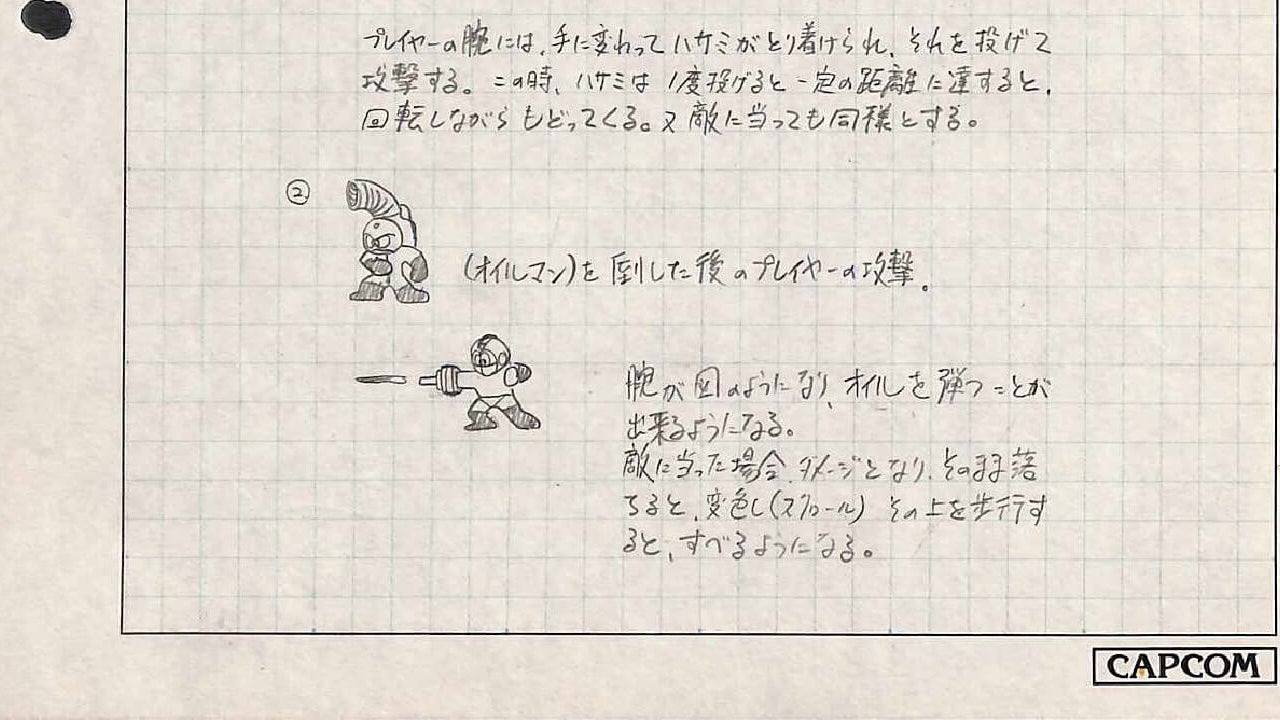 プレイヤーの腕には、手に変わってハサミがとり着けられ、それを投げて
攻撃する。この時、ハサミは1度投げると一定の距離に達すると、
回転しながらもどってくる。又敵に当っても同様とする。
②
(オイルマン)を倒した後のプレイヤーの攻撃。
腕が図のようになり、オイルを弾つことが
出来るようになる。
敵に当った場合、ダメージとなり、そのまま落
ちると、変色し(スクロール) その上を歩行す
ると、すべるようになる。
CAPCOM